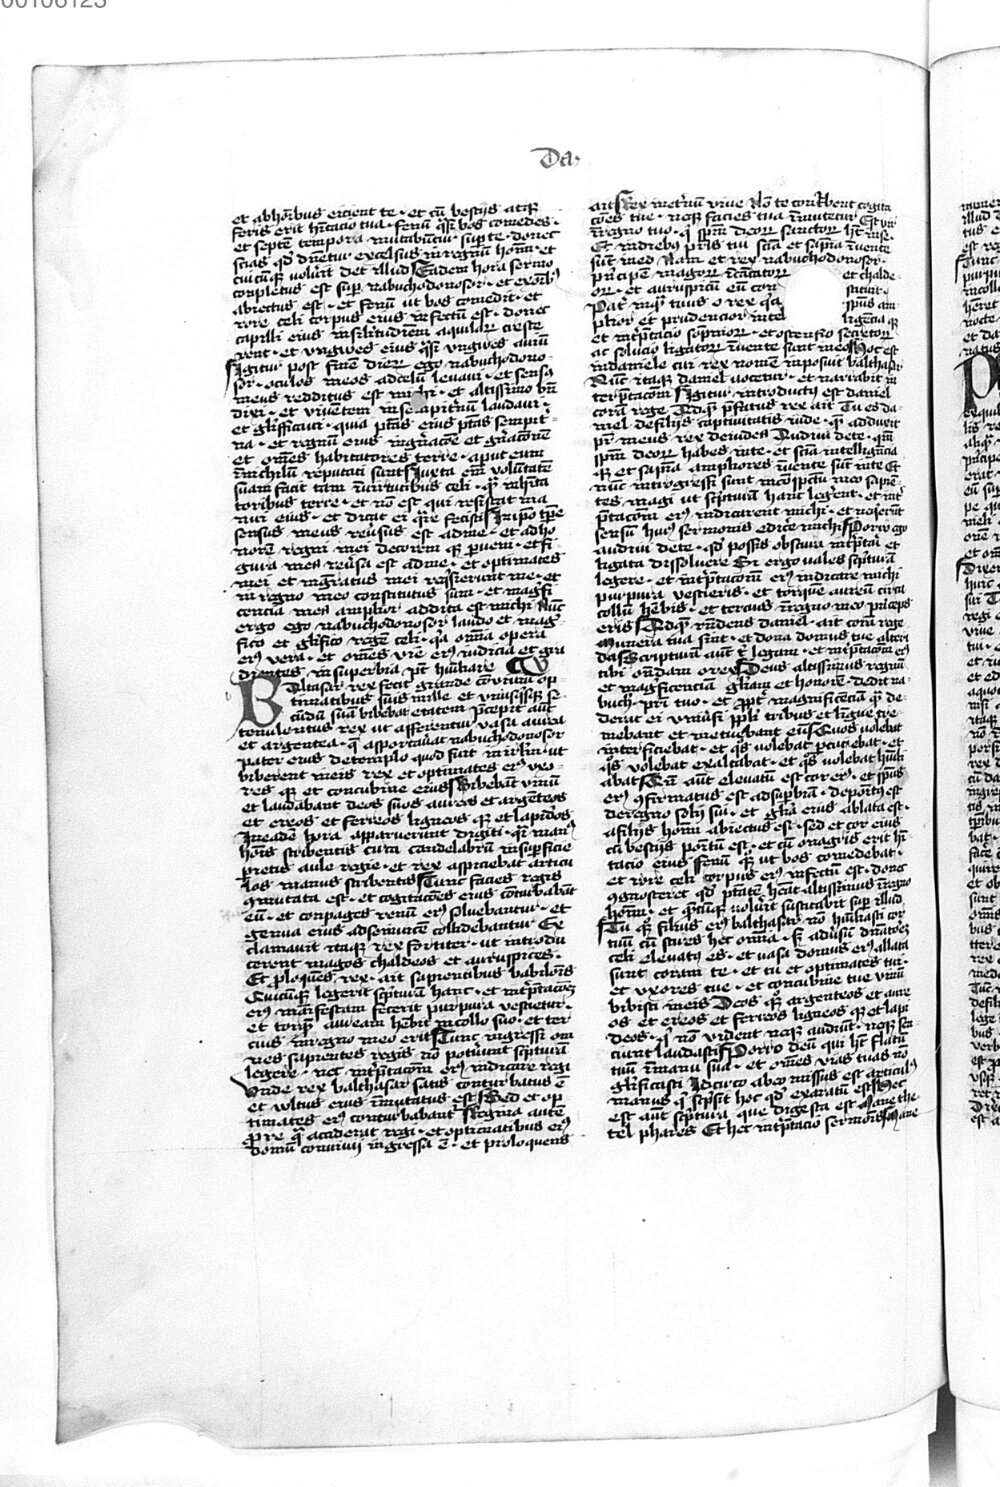 00106123
Da.
et abhoībus eicient te · et cū bestijs atqꝫ
feris erit hītacio tua · fenū qͣsi bos comedes ·
et septē tempora mutabūtur sup te · donec
scias qd dn̄etur excelsus in regnū hoīm · et
cuicūqꝫ voluīt det illud Eadem hora sermo
conpletus est sup nabuchodonosor · et ex hoībꝰ
abiectus est · et fenū ut bos comedit · et
rore celi corpus eius infectū est · donec
capilli eius in silitudinē aquilarꝝ cresce
rent · et vngwes eius qͣsi vngwes auiū
Igitur post finē dierꝝ ego nabuchodono-
sor · oculos meos ad celū levaui · et sensꝰ
meus redditus est michi · et altissimo bn̄
dixi · et viuētem in sempitn̄ū laudaui ·
et glificaui · quia ptās eius ptās sempit-
na · et regnū eius in gn̄acōē et gn̄acōnē
et om̄es habitatores terre · aput eum
in nichilū reputati sunt Iuxta em̄ volūtatē
suam facit tam in virtutibus celi · qͣ in hīta
toribus terre · et nō est qui resistat ma
nui eius · et dicat ei qͣre fecisti In ipo tꝑe
sensus meus reūsus est ad me · et ad ho
norē regni mei decorem qꝫ pueni · et fi
gura mea reūsa est ad me · et optimates
mei et mgratus mei reqͥsierunt me · et
in regno meo constitutus sum · et magfi
cencia mea amplior addita est michi Nūc
ergo ego nabuchodonosor laudo et mag
fico et glifico regē celi · qa omīa opera
eiꝰ vera · et om̄es vie eiꝰ iudicia et gra
dientes in superbia pt hūiliare C V
Baltasar rex fecit grande cōuiuiū op-
timatibus suis mille et vnusqͥsqꝫ se-
cūdū suā bibebat etatem p̄cepit aūt
temulentus rex ut afferentur vasa aurea
et argentea · que asportauat nabuchodonosor
pater eius de templo quod fuit in irlm̄ · ut
biberent in eis rex et optimates eiꝰ vxo-
res qꝫ et concubine eius Bibebāt vinū
et laudabant deos suos aureos et argēteos
et ereos et ferreos ligneos qꝫ et lapideos
In eadē hora apparuerunt digiti · qͣsi manꝰ
hoīs scribentis cūtra candelabrū in supficie
pietis aule regie · et rex aspiciebat articu
los manus scribentis Tunc facies regis
ꝯmutata est · et cogitacōes eius cōturbabāt
eū · et conpages renū eiꝰ soluebantur · et
genua eius ad se inuicē collidebantur Ex
clamauit itaqꝫ rex fortiter · ut introdu
cerent magos chaldeos et auruspices ·
Et ploquēs rex · ait sapientibus babilōis
Quicūqꝫ legerit scpturā hanc · et intp̄tacōeꝫ
eiꝰ manifestam fecerit purpura vestietur ·
et torqꝫ auream hēbit in collo suo · et ter
cius in regno meo erit Tunc ingressi om
nes sapientes regis nō potuēūt scpturā
legere · nec intp̄tacōeꝫ eiꝰ indicare regi
Vnde rex balthasar satis conturbatus ē
et wltus eius īmutatus est Sed et op
timates eiꝰ conturbabant Regina autē
ꝓ re qͣ acciderat regi · et optimatibus eiꝰ
domū conuiuij ingressa ē · et proloquens
ait Rex in etn̄ū viue Nō te conturbent cogita
cōes tue · neqꝫ facies tua īmutetur Est vir
in regno tuo · qͥ spm̄ deorꝝ sanctorꝝ hꝫ in se ·
Et in diebus pr̄is tui scīa et sapīa inuente
sunt in eo Nam et rex nabuchodonosor ·
pn̄cipem magorꝝ incātatorꝝ et chalde-
orꝝ · et auruspicū eū con stituit ·
Pater inqꝫ tuus o rex qa spūs am-
plior et prudencior inte ligēcia qꝫ
et intp̄tacio sopniorꝝ · et ostensio secretorꝝ
ac solucio ligatorꝝ inuente sunt in eo Hoc est
in daniele cui rex nomē inposuit balthasar
Nūc itaqꝫ daniel vocetur · et narrabit in
terp̄tacōem Igitur introductꝰ est daniel
corā rege Ad qͣ p̄fatus rex ait Tu es da-
niel de filijs captiuitatis iude · qͣ adduxit
pr̄ meus rex de iudea Audiui de te · qm̄
spm̄ deorꝝ habes in te · et scīa intelligēcia
qꝫ et sapīa ampliores inuente sūt in te Et
nūc introgressi sunt in cōspectu meo sapiē-
tes magi ut scpturā hanc leger̄ent · et int-
p̄tacōem eiꝰ indicarent michi · et neqerūt
sensū huiꝰ sermonis edic̄e michi Porro ego
audiui de te · qd possis obscura intp̄tari et
ligata dissoluere Si ergo vales scpturā
legere · et intp̄tacionē eiꝰ indicare michi
purpura vestieris · et torquē aureū circa
collū hēbis · et tercius in regno meo pn̄ceps
eris Ad qͣ rn̄dens daniel · ait corā rege
Munera tua sint · et dona domus tue alteri
da Scripturā aut tͥ legam · et intp̄tacōem eiꝰ
tibi on̄dam o rex Deus altissimus regnū
et magnificenciā glīam et honorē dedit na-
buch · pr̄i tuo · et ꝓpt magnificēciā qͣ de-
derat ei vniūsi ppli tribus et līgue tre
mebant et metuebant eū Quos volebat
interficiebat · et qͦs volebat pcuciebat · et
qͦs volebat exaltabat · et qͦs volebat hūili
abat Qn̄ aut eleuatū est cor eiꝰ · et spūs
eiꝰ ꝯfirmatus est ad supbiā · depositꝰ est
de regno solij sui · et glīa eius ablata est ·
a filijs hoīm abiectus est · sed et cor eius
cū bestijs positū est · et cū onagris erit hī-
tacio eius fenū qꝫ ut bos comedebat ·
et rore celi corpus eiꝰ infectū est · donec
ꝯgnosceret qd ptātē hēat altissimus in regno
hoīm · et qͣcūqꝫ voluīt suscitabit sup illud
Tu qꝫ filius eiꝰ balthasar nō hūiliasti cor
tuū cū scires hec omīa · sꝫ adūsū dn̄atorē
celi eleuatꝰ es · et vasa domus eiꝰ allata
sunt coram te · et tu et optimates tui ·
et vxores tue · et concubine tue vinū
bibisti in eis Deos qꝫ argenteos et aure
os et ereos et ferreos ligneos qꝫ et lapi
deos · qͥ nō vident neqꝫ audiūt · neqꝫ sen
ciunt laudasti Porro deū qui hꝫ flatū
tuū in manu sua · et om̄es vias tuas nō
glificasti Idcirco ab eo missus est articulꝰ
manus qͣ scpsit hoc qd exaratū est Hec
est aūt scptura que digesta est Mane the-
tel phares Et hec intp̄tacio sermōis Mane